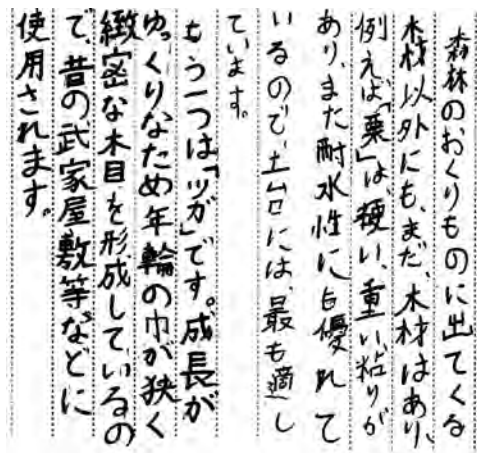 森林のおくりものに出てくる
木材以外にも、まだ、木材はあり、
例えば「栗」は、粳い、重い、粘りが
あり、また耐水性にも優れて
いるので、土台には、最も適し
ています。
もう一つは「ツガ」です。成長が
ゆっくりなため年輪の巾が狭く
緻密な木目を形成しているの
で、昔の武家屋敷等などに
使用されます。